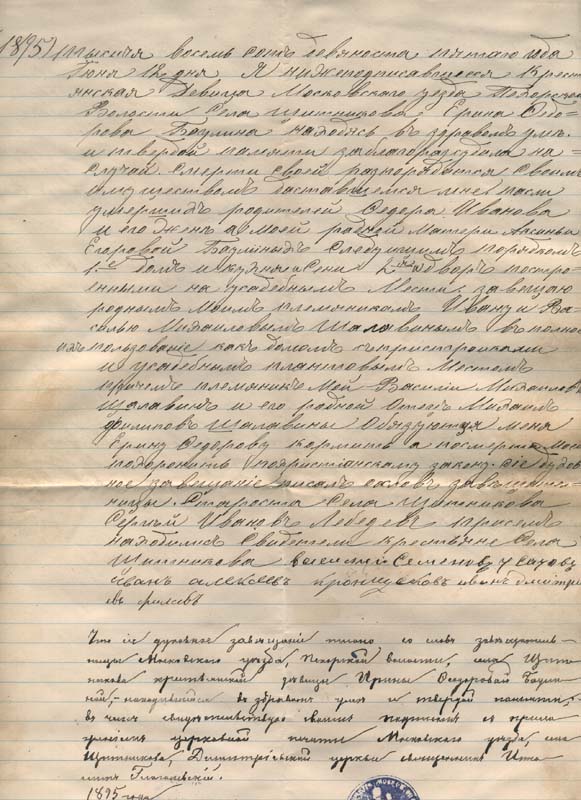 1895) тысяча восемь сотъ девяноста пятаго года
Iюня 12 дня, Я нижеподписавшаяся Крест
янская Девица Московскаго уезда Пехорской
Волости Села Щитникова Ерина Федо
рова Баулина находясь въ здравомъ уме
и твердой памяти заблагоразсудила на
случай смерти своей распорядится своимъ
имуществомъ доставшемся мне после
умершихъ родителей Федора Иванова
и его жены а моей родной Матери Аксиньи
Егаровой Баулиныхъ Следующимъ порядкомъ
1.е домъ и кухня и сени 2 дворъ постро
енными на усадебнымъ Месте, завещаю
роднымъ Моимъ племянникамъ Ивану и Ва
силью Михаиловымъ Шалавинымъ въ полное
ихъ пользование какъ домомъ съ пристройками
и усадебнымъ плановымъ Местомъ
причемъ племянникъ Мой Василий Михаиловъ
Шалавинъ и его родной Отецъ Михаилъ
Филиповъ Шалавины Обязуются меня
Ерину Федорову кормить а посмерти Моей
похоронить похристианскому закону. Сiе духов
ное завещание писалъ сословъ завещатель
ницы Староста Села Щитникова
Сергей Ивановъ Лебедевъ присемъ
находились Свидетели крестьяне Села
Щитникова василий Семеновъ
Иванъ алексеевъ иванъ дмитри
евъ
Что сiе духовное завещанiе писано со словъ завещатель-
ницы Московскаго уезда, Пехорской волости, села Щит
никова крестьянской девицы Ирины Федоровой Баули
ной, находившейся въ здравомъ уме и твердой памяти,
въ чемъ свидетельствую своимъ подписомъ съ прило
женiемъ церковной печати Московскаго уезда, села
Щитникова, Димитрiевской церкви священникъ
1895 года